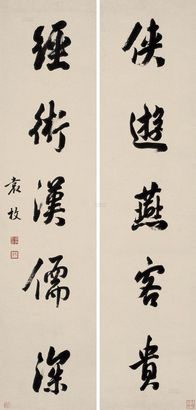 侠遊燕客貴
經術漢儒深
袁枚